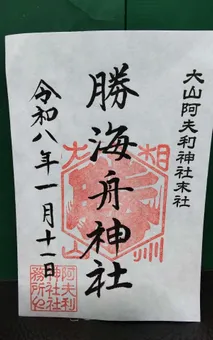 大山阿夫利神社末社
勝海舟神社
相州
大山
令和八年一月十一日
阿夫利
神社社
務所印